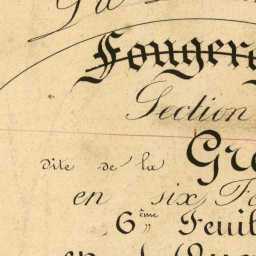 Fouger
Section
dite de la Gr
en six Fe
6ème Feuil
en